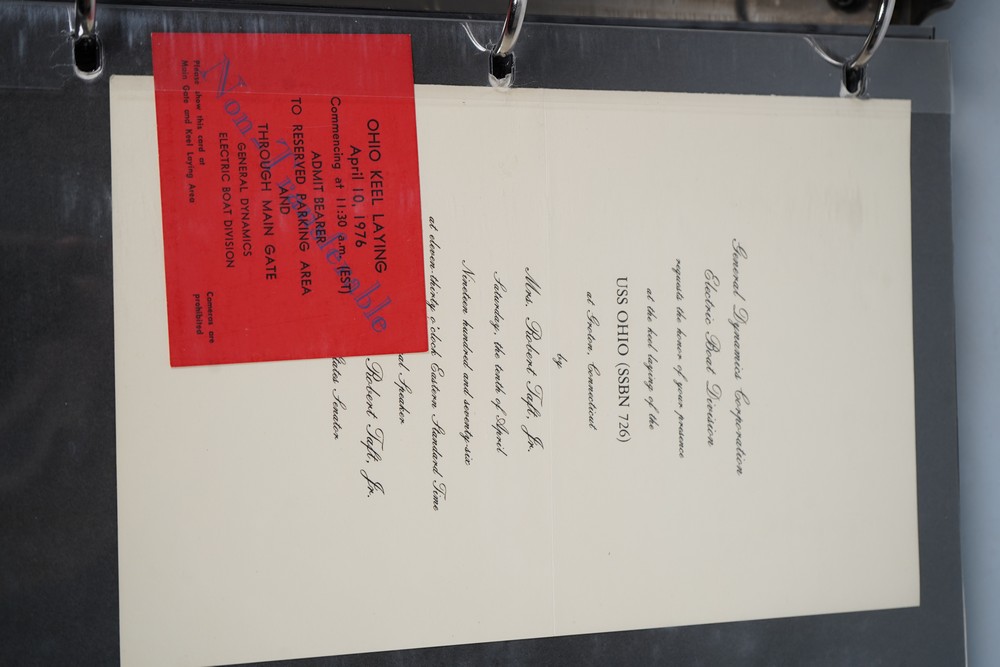 General Dynamics Corporation
Electric Boat Division
requests the honor of your presence
at the keel laying of the
USS OHIO (SSBN 726)
at Groton, Connecticut
by
Mrs. Robert Taft, Jr.
Saturday, the tenth of April
Nineteen hundred and seventy-six
at eleven-thirty o'clock Eastern Standard Time
al Speaker
Robert Taft, Jr.
ates Senator
OHIO KEEL LAYING
April 10, 1976
Commencing at 11:30 a.m. (EST)
ADMIT BEARER
TO RESERVED PARKING AREA
AND
THROUGH MAIN GATE
GENERAL DYNAMICS
ELECTRIC BOAT DIVISION
Please show this card at
Main Gate and Keel Laying Area
Cameras are
prohibited
Non Transferable